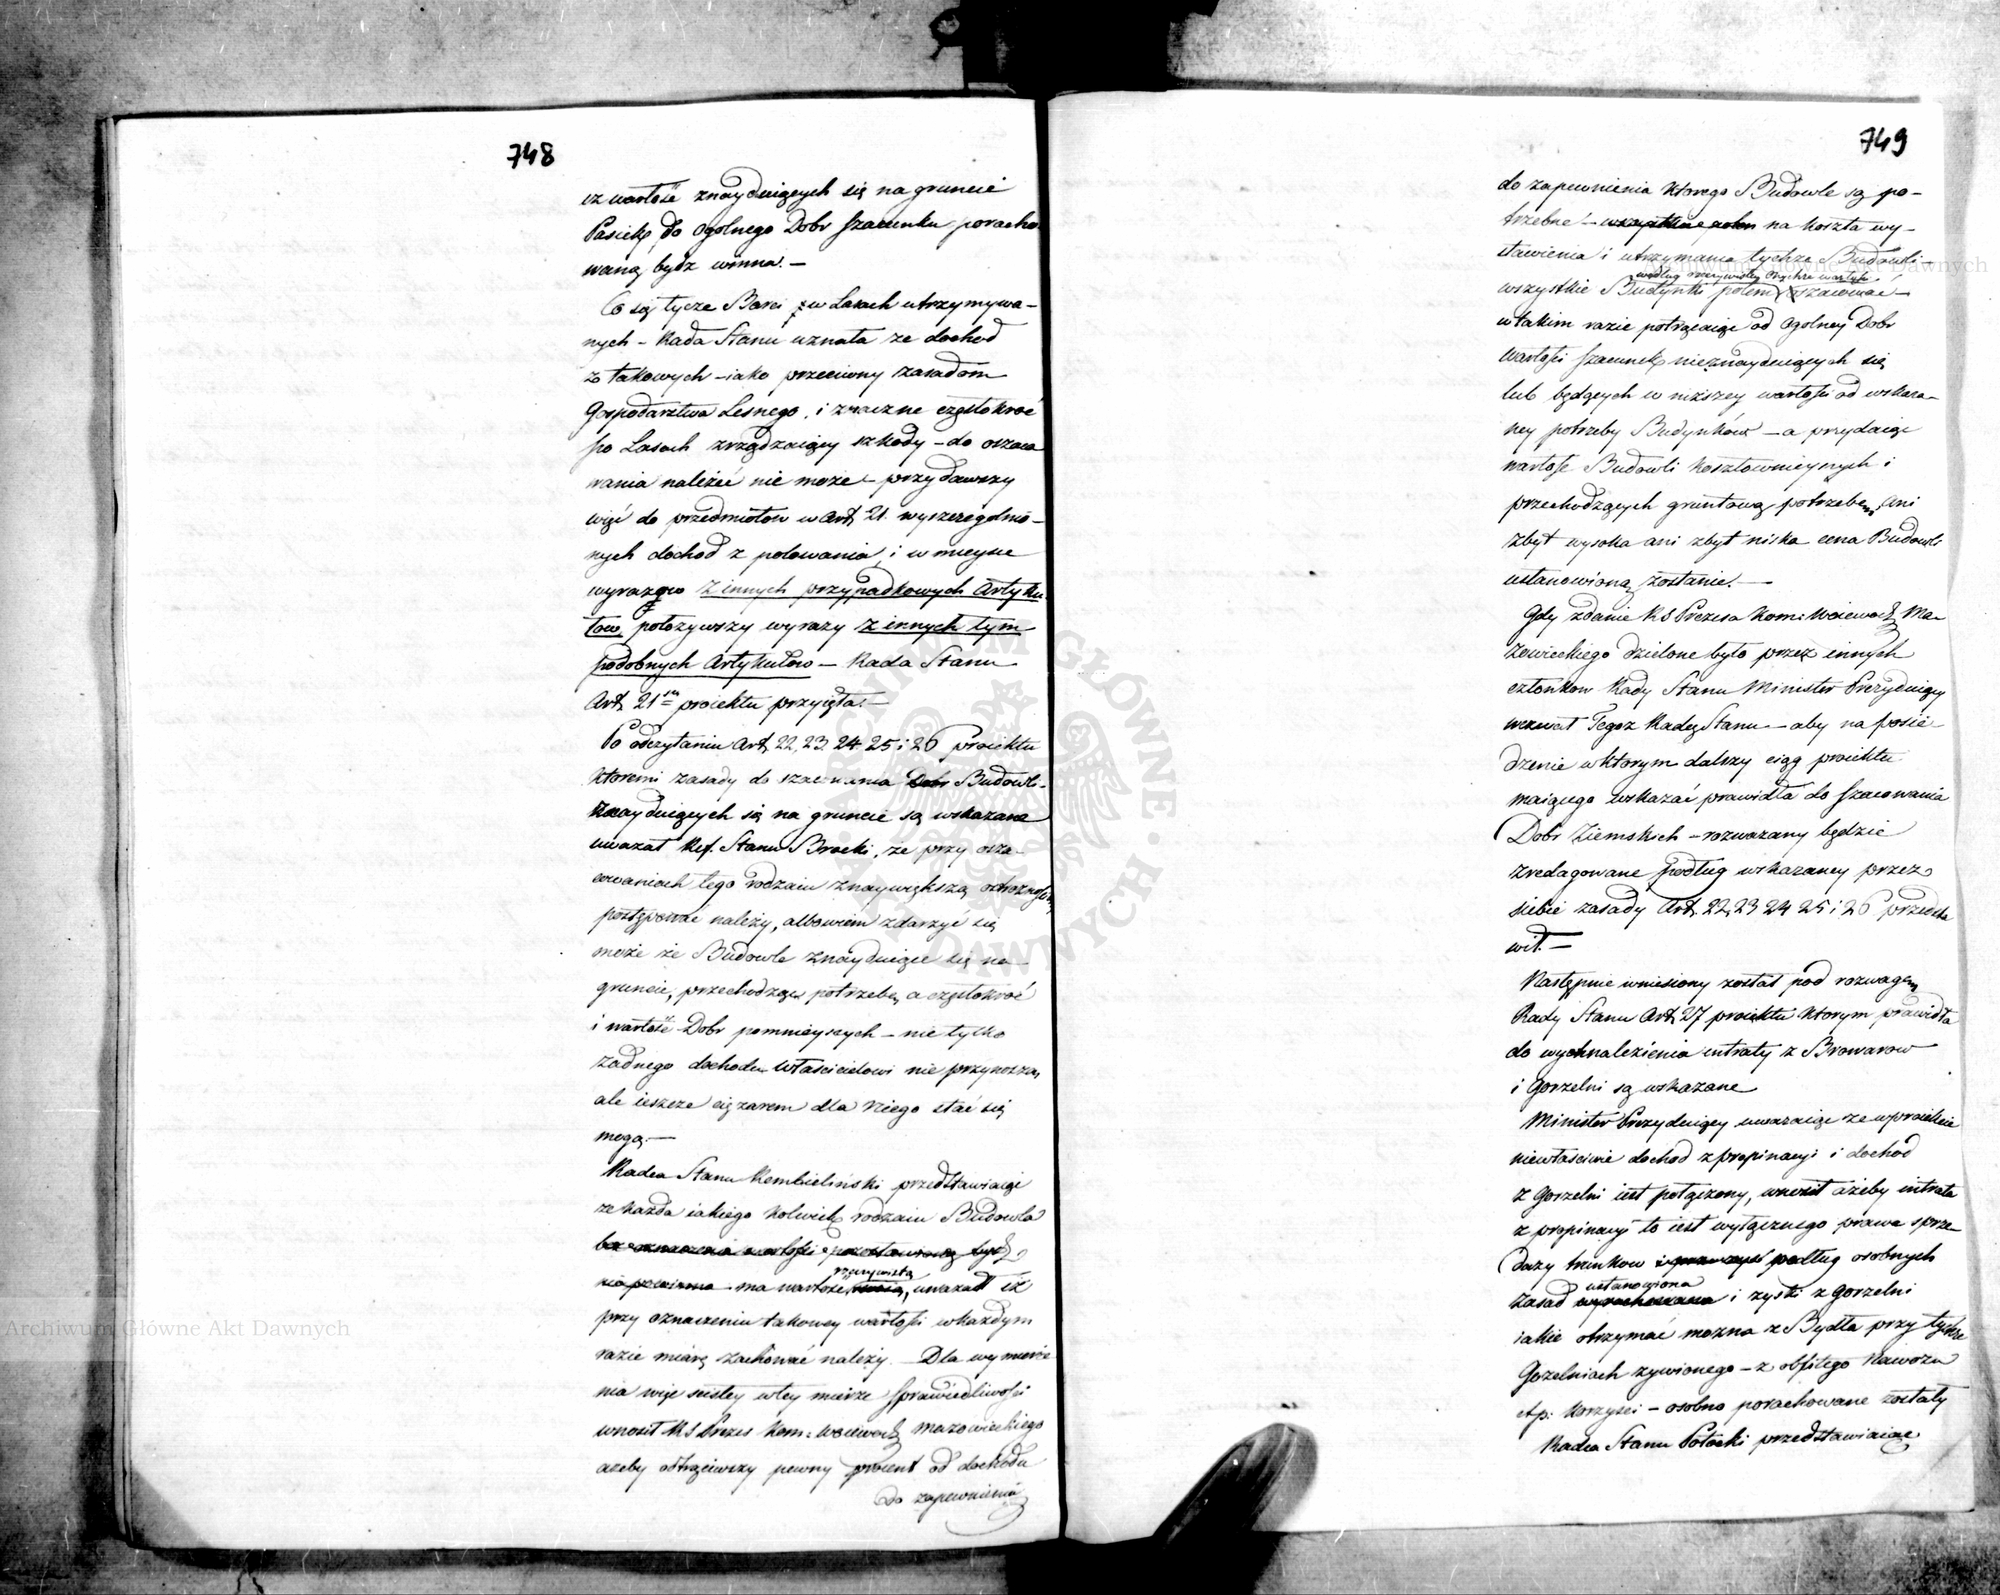 748
iż wartość znayduiących się na gruncie
Pasiek, do Ogolnego Dobr szacunku poracho
waną bydz winna. —
Co się tycze Barci w Lasach utrzymywa–
nych – Rada Stanu uznała ze dochod
z takowych – iako przeciwny zasadom
Gospodarstwa Lesnego, i znaczne częstokroć
po Lasach zrządzaiący szkody – do oszaco
wania należéć nie może – przydawszy
więc do przedmiotow w Art. 21. wyszczególnio–
nych dochod z polowania, i w mieysce
wyrazow z innych przypadkowych Artyku
łow, położywszy wyrazy z innych tym
podobnych Artykułow — Rada Stanu
Art. 21szy proiektu przyięła. —
Po odczytaniu Art. 22, 23. 24. 25 i 26 proiektu
ktoremi zasady do szacowania Dobr Budowli
znayduiących się na gruncie są wskazane
uważał Ref. Stanu Brocki, ze przy osza–
cowaniach tego rodzaiu z naywiększą ostrożnością
postępować należy, albowiem zdarzyć się
może że Budowle znayduiące się na
gruncie, przechodzące potrzebę, a częstokroć
i wartość Dobr pomnieyszych – nie tylko
żadnego dochodu właścicielowi nie przynoszą,
ale ieszcze ciężarem dla niego stać się
mogą. —
Radca Stanu Rembieliński przedstawiaiąc
ze każda iakiego kolwiek rodzaiu Budowla
bez oznaczenia wartości pozostawioną bydz
nie powinna ma wartość rzeczywistą, uważał iż
przy oznaczeniu takowey wartości w każdym
razie miarę zachować należy. — Dla wymierze
nia więc scisłey w tey mierze sprawiedliwości
wnosił R.S. Prezes Kom: Woiewodz. Mazowieckiego
azeby odtrąciwszy pewny procent od dochodu
do zapewnienia
749
do zapewnienia ktorego Budowle są po–
trzebne – na koszta wy–
stawienia i utrzymania tychże Budowli –
według rzeczywistey onychże wartości
wszystkie Budynki potem oszacować –
w takim razie potrącaiąc od Ogolney Dobr
wartości szacunek nieznayduiących się
lub będących w niższey wartości od wskaza–
ney potrzeby Budynków – a przydaiąc
wartość Budowli kosztownieyszych i
przechodzących gruntową potrzebę, ani
zbyt wysoka ani zbyt niska cena Budowli
ustanowioną zostanie. —
Gdy zdanie R.S. Prezesa Kom: Woiewodz. Ma–
zowieckiego dzielone było przez innych
członkow Rady Stanu Minister Prezyduiący
wezwał Tegoz Radcę Stanu – aby na posie–
dzenie w ktorym dalszy ciąg proiektu
maiącego wskazać prawidła do szacowania
Dobr Ziemskich – rozwazany będzie
zredagowane podług wskazaney przez
siebie zasady Art. 22, 23 24 25 i 26 przedsta
wił. —
Następnie wniesiony został pod rozwagę
Rady Stanu Art. 27 proiektu ktorym prawidła
do wynalezienia intraty z Browarow
i Gorzelni są wskazane
Minister Prezyduiący uwazaiąc ze w proiekcie
niewłaściwie dochod z propinacyi i dochod
z Gorzelni iest połączony, wnosił ażeby intrata
z propinacyi to iest wyłącznego prawa sprze
daży trunkow podług osobnych
ustanowiona
zasad wyrachowana i zyski z Gorzelni
iakie otrzymać można z Bydła przy tychże
Gorzelniach żywionego – z obfitego nawozu
etp: korzyści – osobno porachowane zostały
Radca Stanu Potocki przedstawiaiąc